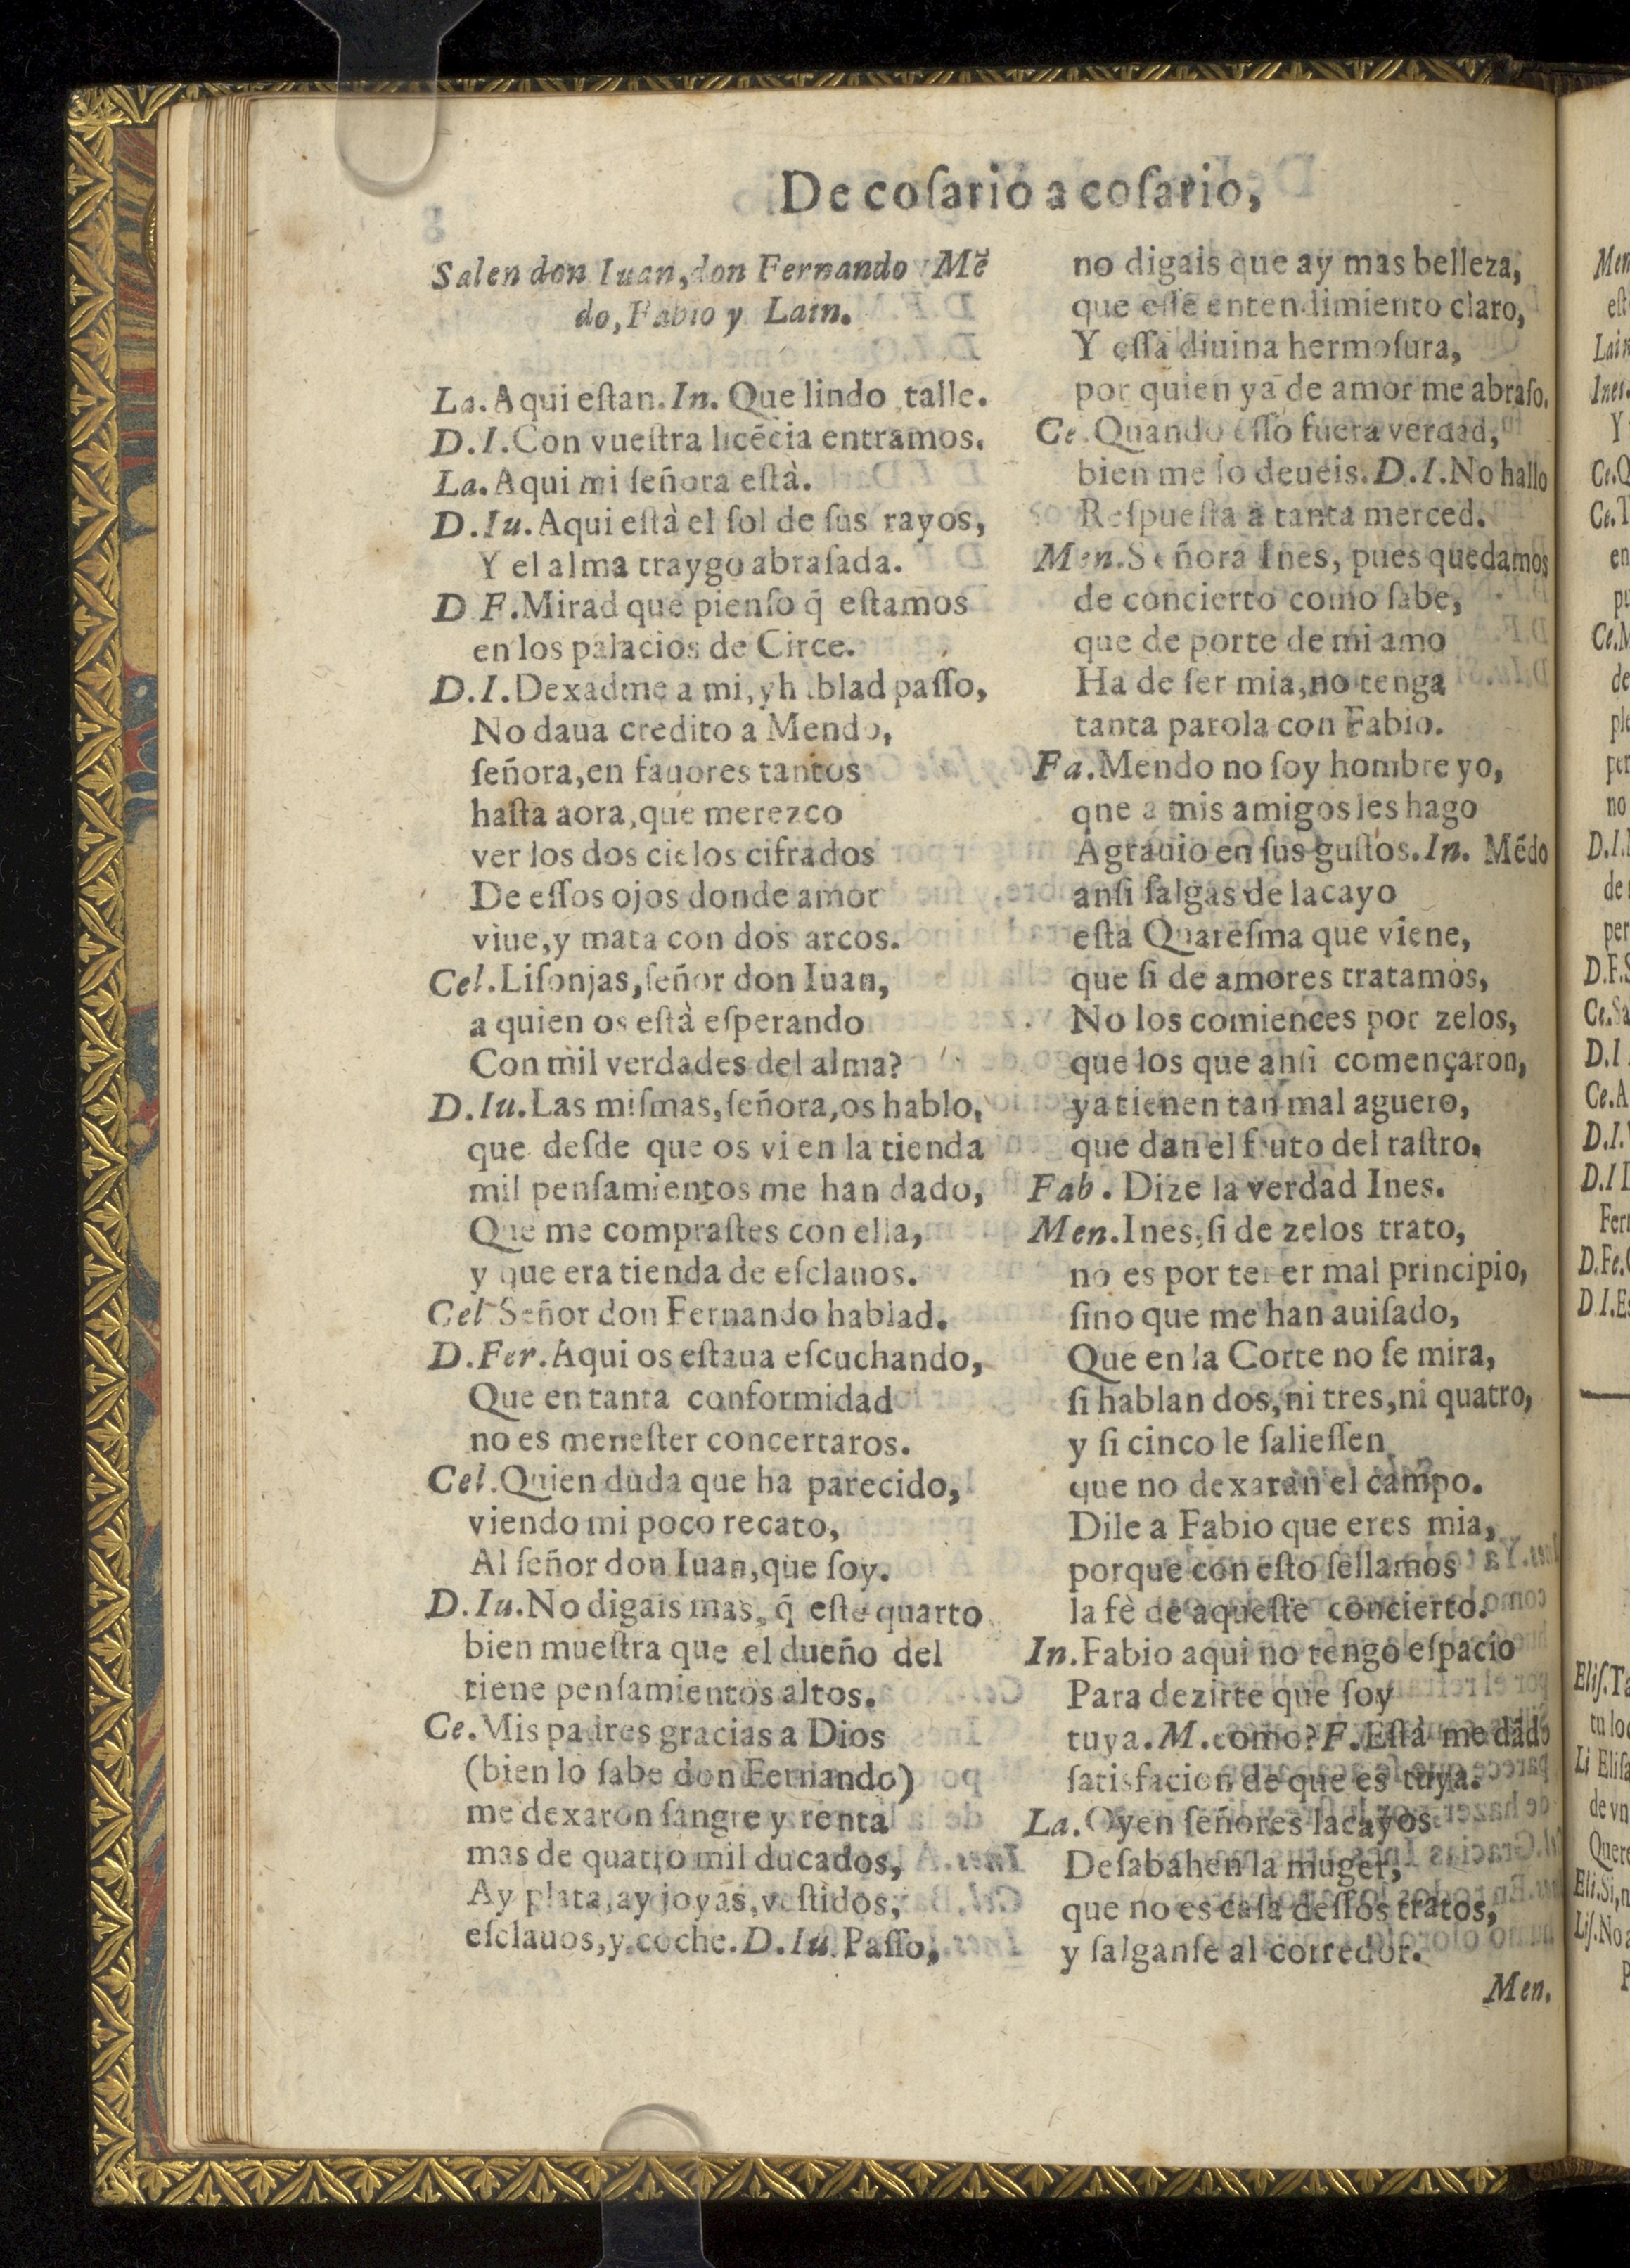 De coſario a coſario,
Salen don Iuan, don Fernando y Mẽ
do, Fabio y Lain.
La. Aqui eſtan. In. Que lindo talle.
D.I. Con vueſtra licẽcia entramos.
La. Aqui mi ſeñora eſtà.
D.Iu. Aqui eſtà el ſol de ſus rayos,
Y el alma traygo abraſada.
D F. Mirad que pienſo q̃ eſtamos
en los palacios de Circe.
D.I. Dexadme a mi, y h blad paſſo,
No daua credito a Mendo,
ſeñora, en fauores tantos
haſta aora, que merezco
ver los dos cielos cifrados
De eſſos ojos donde amor
viue, y mata con dos arcos.
Cel. Liſonjas, ſeñor don Iuan,
a quien os eſtà eſperando
Con mil verdades del alma?
D.Iu. Las miſmas, ſeñora, os hablo,
que deſde que os vi en la tienda
mil penſamientos me han dado,
Que me compraſtes con ella,
y que era tienda de eſclauos.
Cel Señor don Fernando hablad.
D.Fer. Aqui os eſtaua eſcuchando,
Que en tanta conformidad
no es meneſter concertaros.
Cel. Quien duda que ha parecido,
viendo mi poco recato,
Al ſeñor don Iuan, que ſoy.
D.Iu. No digais mas, q̃ eſte quarto
bien mueſtra que el dueño del
tiene penſamientos altos.
Ce. Mis padres gracias a Dios
(bien lo ſabe don Fernando)
me dexaron ſangre y renta
mas de quatro mil ducados,
Ay plata, ay joyas, veſtidos,
eſclauos, y coche. D.Iu. Paſſo,
no digais que ay mas belleza,
que eſſe entendimiento claro,
Y eſſa diuina hermoſura,
por quien ya de amor me abraſo.
Ce. Quando eſſo fuera verdad,
bien me lo deueis. D.I. No hallo
Reſpueſta a tanta merced.
Men. Señora Ines, pues quedamos
de concierto como ſabe,
que de porte de mi amo
Ha de ſer mia, no tenga
tanta parola con Fabio.
Fa. Mendo no ſoy hombre yo,
qne a mis amigos les hago
Agrauio en ſus guſtos. In. Mẽdo
anſi ſalgas de lacayo
eſta Quareſma que viene,
que ſi de amores tratamos,
No los comiences por zelos,
que los que anſi començaron,
ya tienen tan mal aguero,
que dan el fruto del raſtro.
Fab. Dize la verdad Ines.
Men. Ines, ſi de zelos trato,
no es por tener mal principio,
ſino que me han auiſado,
Que en la Corte no ſe mira,
ſi hablan dos, ni tres, ni quatro,
y ſi cinco le ſalieſſen
que no dexaran el campo.
Dile a Fabio que eres mia,
porque con eſto ſellamos
la fè de aqueſte concierto.
In. Fabio aqui no tengo eſpacio
Para dezirte que ſoy
tuya. M. como? F. Eſtà me dãdo
ſatisfacion de que es tuya.
La. Oyen ſeñores lacayos
Deſabahen la muger,
que no es caſa deſſos tratos,
y ſalganſe al corredor.
Men.